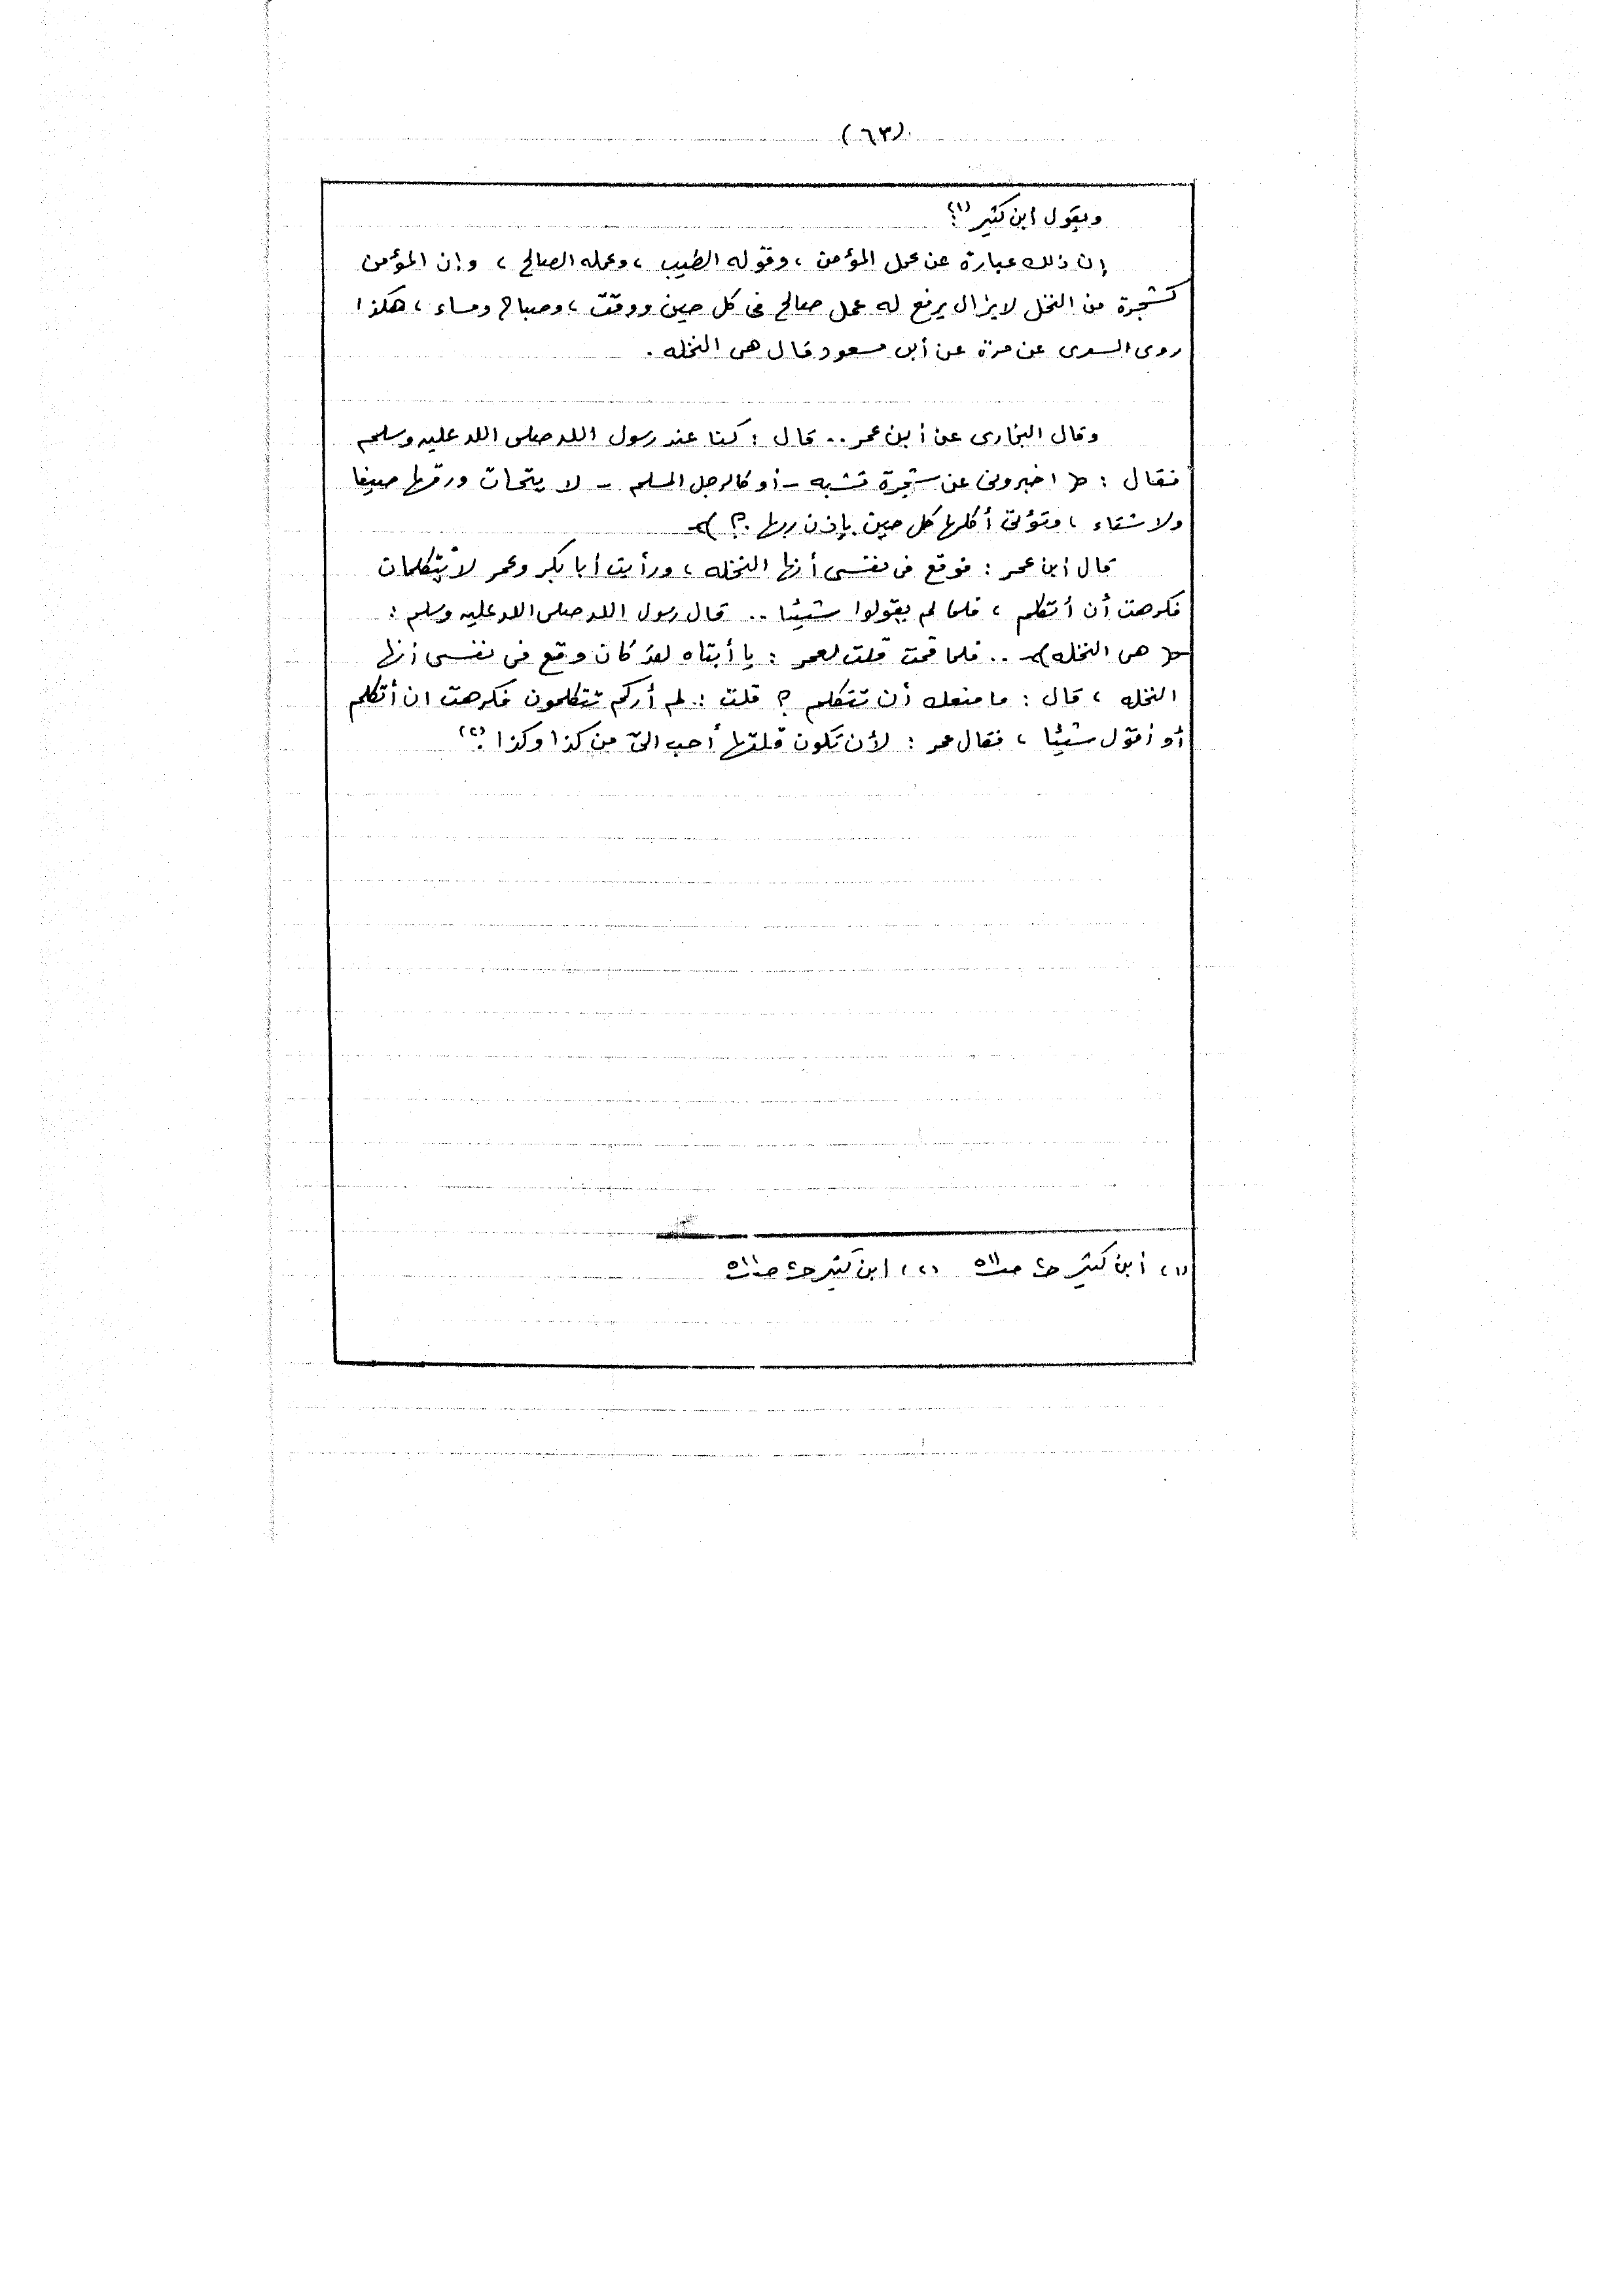 (٦٣)
ويقول ابن كثير (١):
إن ذلك عبارة عن عمل المؤمن ، وقوله الطيب ، وعمله الصالح ، وإن المؤمن
كشجرة من النخل لا يزال يرفع له عمل صالح فى كل حين ووقت ، وصباح ومساء ، هكذا
روى السدى عن مرة عن أبن مسعود قال هى النخله .
وقال البخارى عن أبن عمر .. قال : كنا عند رسول الله صلى الله عليه وسلم
فقال : « اخبرونى عن شجرة تشبه - أو كالرجل المسلم - لا يتحات ورقها صيفا
ولا شتاء ، وتؤتى أكلها كل حين بإذن ربها .؟ »
قال ابن عمر : فوقع فى نفسى أنها النخله ، ورأيت أبا بكر وعمر لا يتكلمان
فكرهت أن أتكلم ، فلما لم يقولوا شيئا .. قال رسول الله صلى الله عليه وسلم :
« هى النخله » .. فلما قمت قلت لعمر : يا أبتاه لقد كان وقع فى نفسى أنها
النخله ، قال : ما منعك أن تتكلم ؟ قلت : لم أركم تتكلمون فكرهت ان أتكلم
أو أقول شيئا ، فقال عمر : لأن تكون قلتها أحب الىّ من كذا وكذا .(٢)
(١) أبن كثير ح٢ ص٥١١ (٢) ابن كثير ح٢ ص٥١١